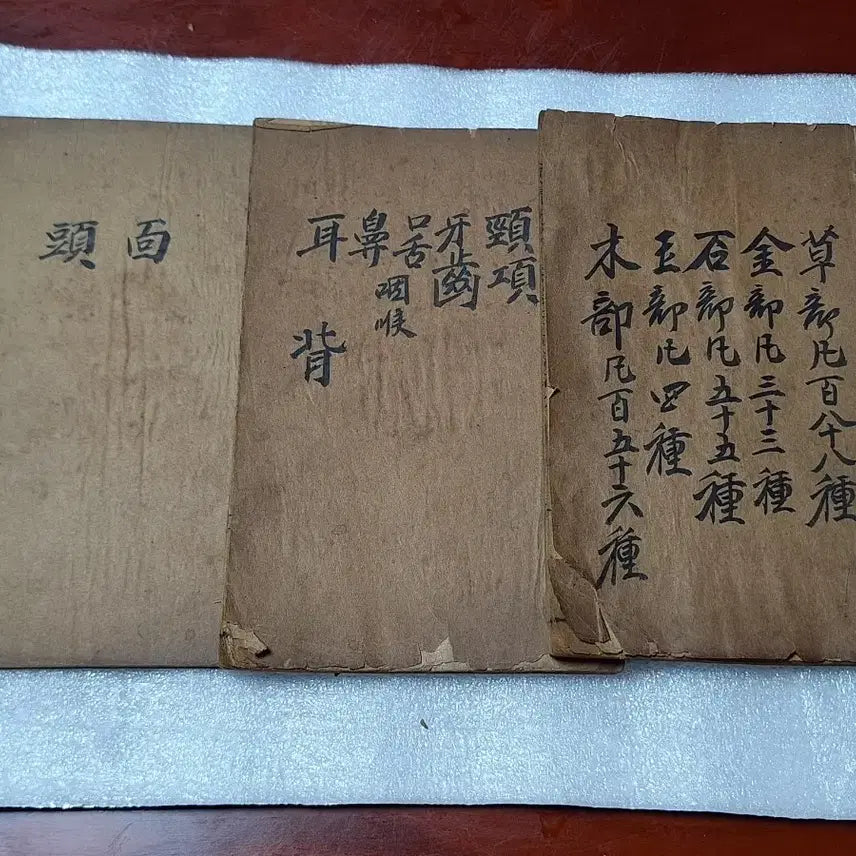 草部凡百八十八種
金部凡三十三種
石部凡五十五種
玉部凡四種
木部凡百五十六種
頸項
牙齒
口舌
咽喉
鼻
耳
背
面
頭